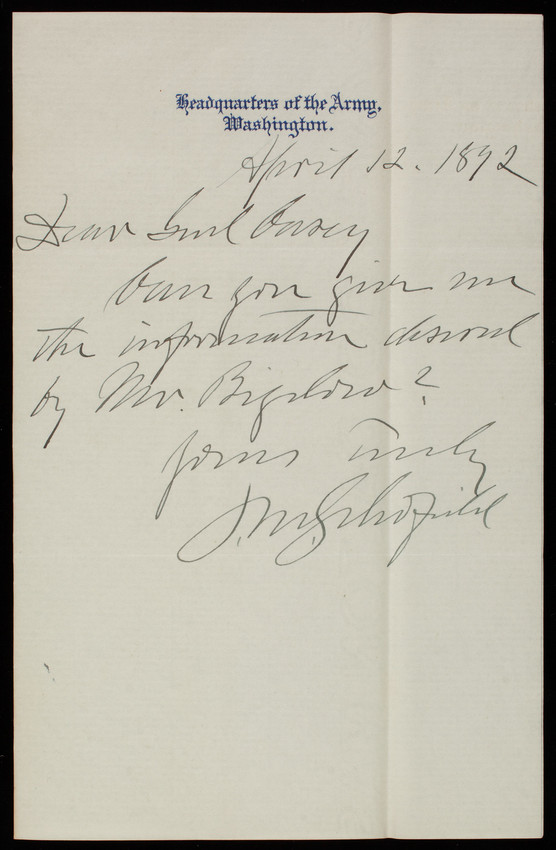 Headquarters of the Army,
Washington.
April 12. 1892
Dear Genl Casey
Can you give me
the information desired
by Mr. Bigelow?
Yours truly
J. M. Schofield